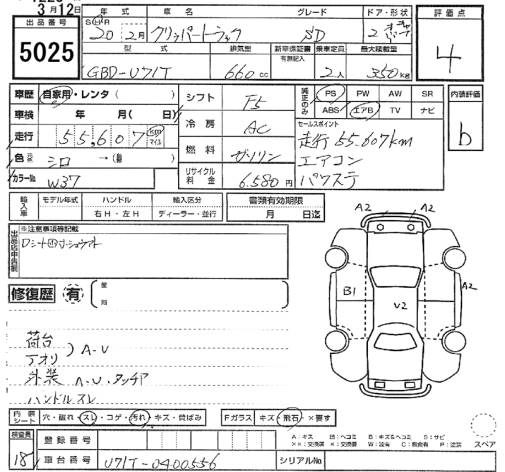 3月12日
出品番号
5025
年式 車名 グレード ドア・形状
SHR 20年2月 クリッパートラック SD 2
型式 排気量 新車保証書 乗車定員 最大積載量
有無記入
GBD-U71T 660cc 2人 350kg
評価点
4
車歴 自家用・レンタ( )
車検 年 月( 日)
走行 55,607 km マイル
色 シロ →(
カラーNo. W37
シフト F5
冷房 AC
燃料 ガソリン
リサイクル料金 6,580円
純正のみ
PS PW AW SR
ABS エアB TV ナビ
セールスポイント
走行55.607km
エアコン
パワステ
内装評価
b
輸入車 モデル年式 ハンドル 輸入区分
右H・左H ディーラー・並行
書類有効期限
月 日迄
※注意事項等記載
修復歴 有
箇所
荷台
アオリ ) A-U
外装 A-U・タッチア
ハンドルスレ
A2 A2
A2
B1
U2
内装シート 穴・破れ・スレ・コゲ・汚れ・キズ・凹ばみ
Fガラス キズ・飛石・×要す
スペア
検査員
18
登録番号
車台番号 U71T-0400556
シリアルNo.